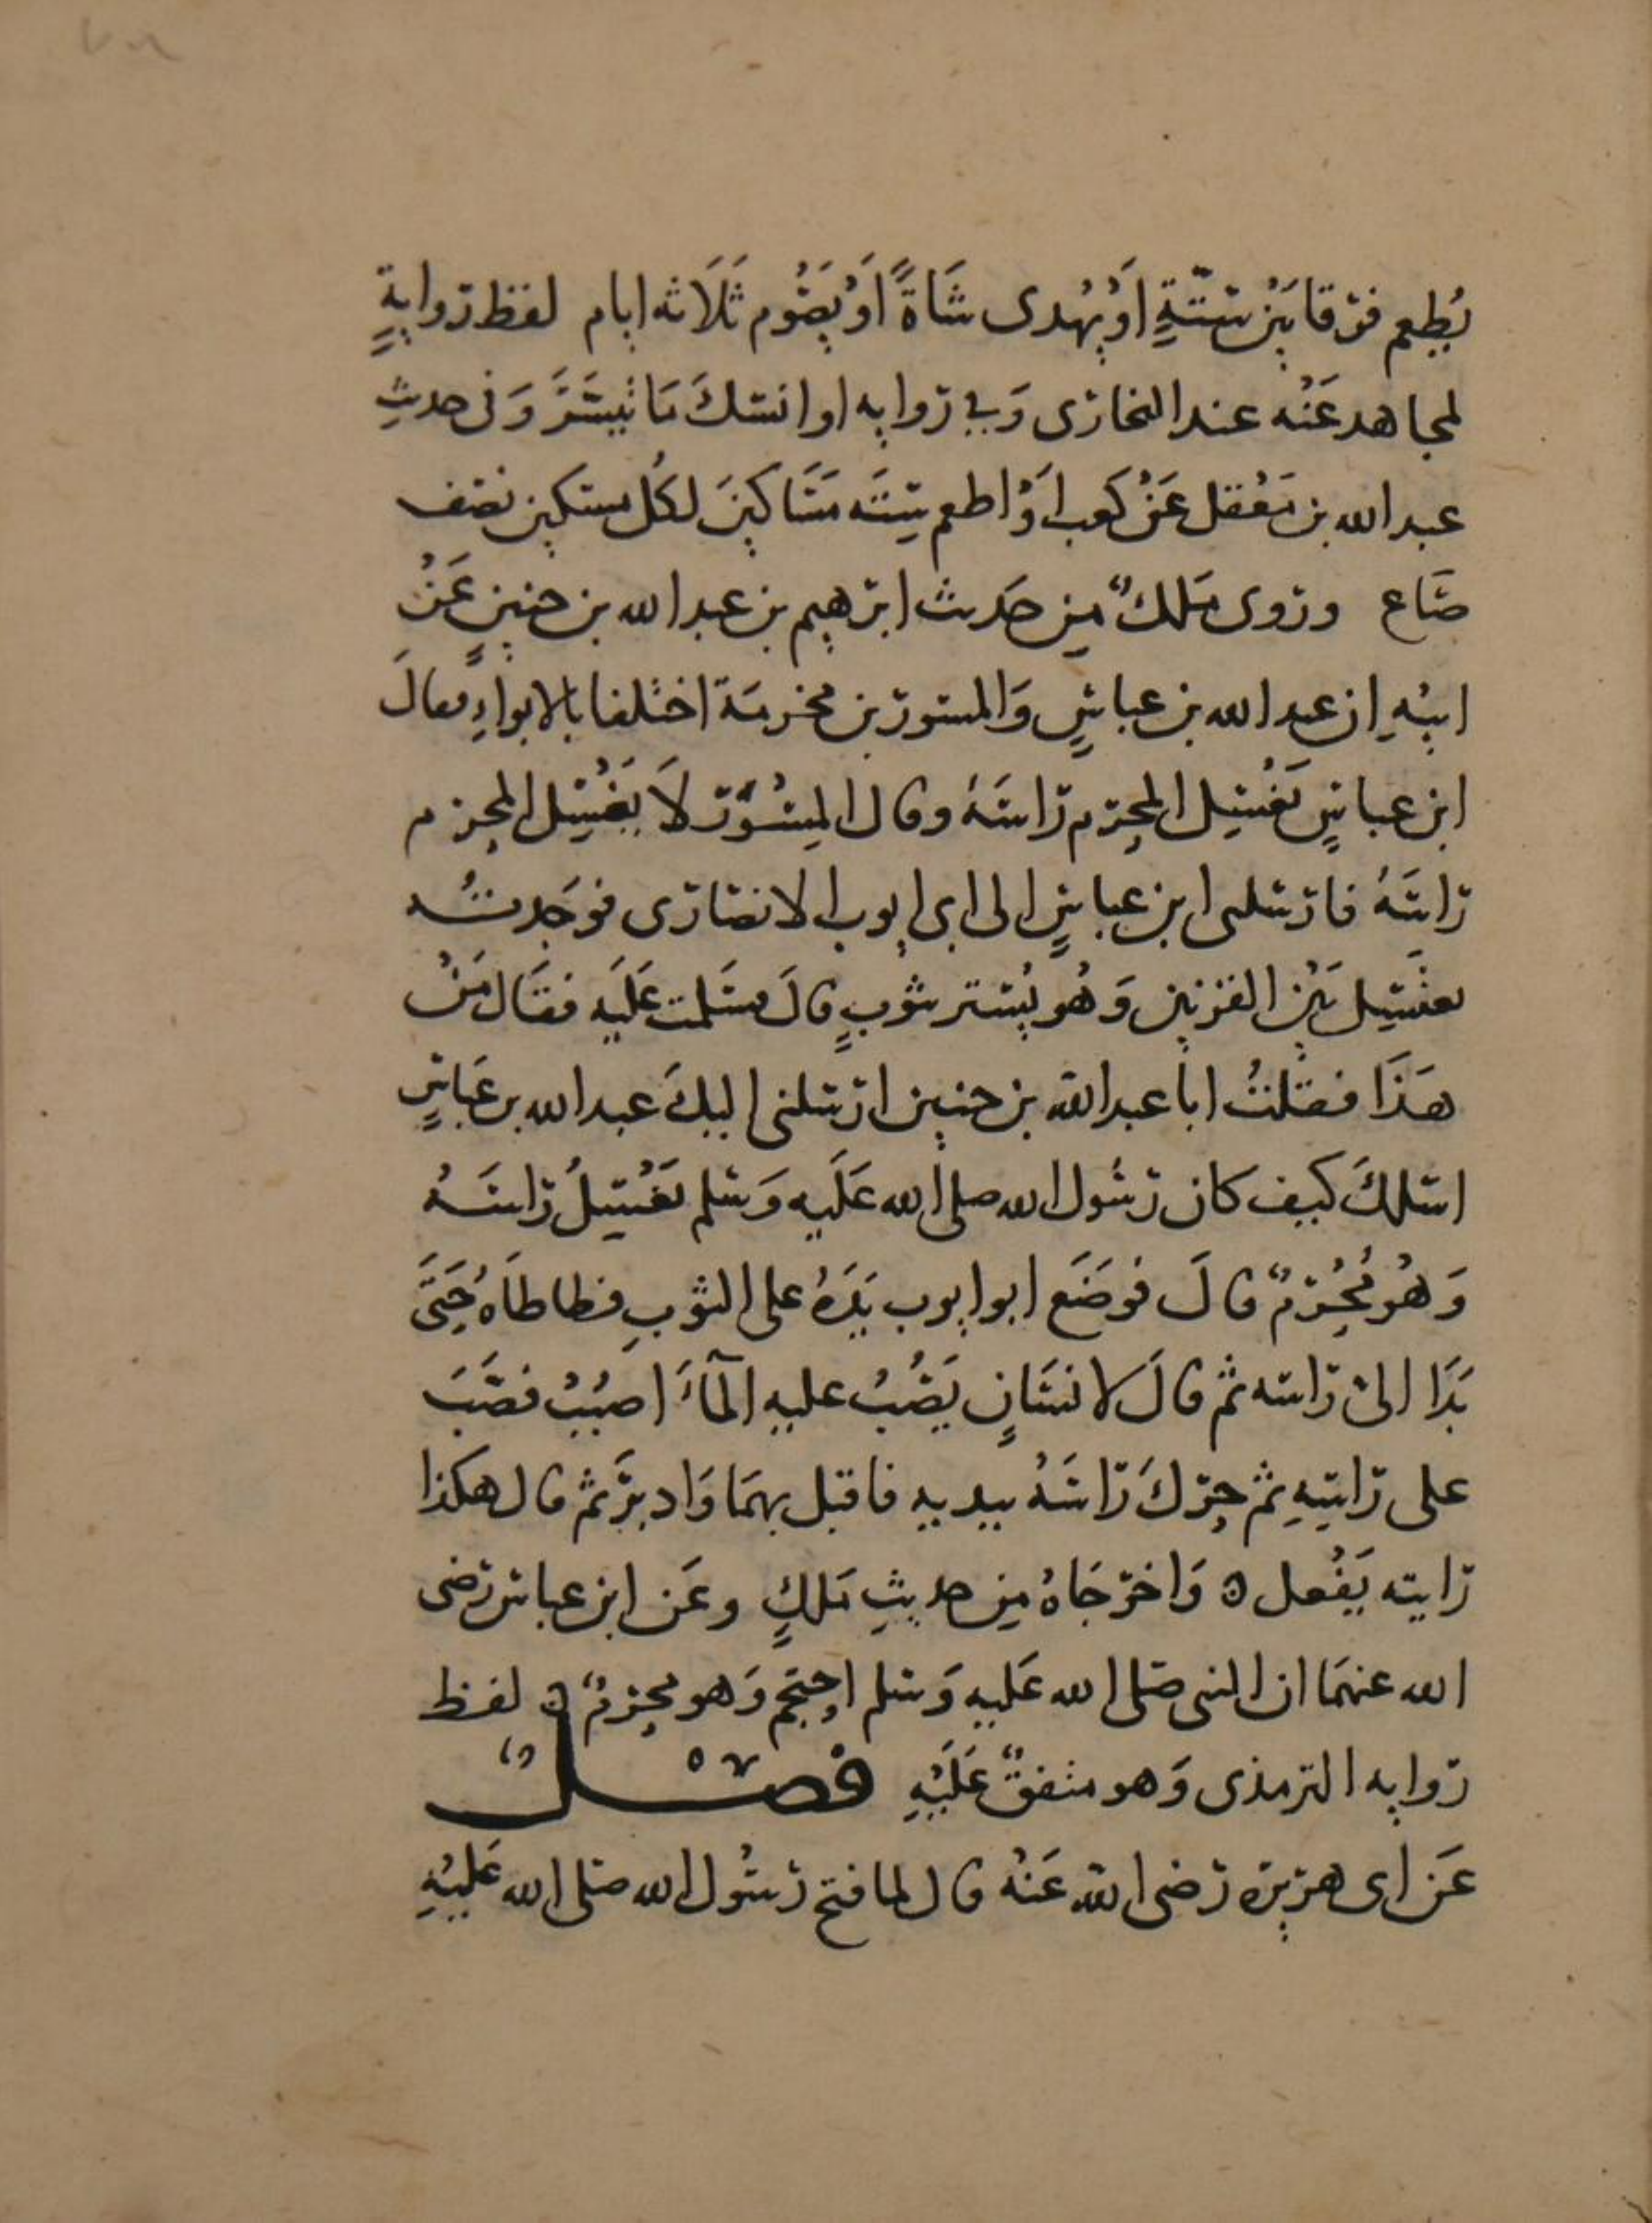 يُطعِم فرقا بَيْن ستّةٍ اَوْ يُهْدى شَاةً اَوْ يَصُوم ثَلَاثه ايام لفظ رواية
لمجاهد عَنْه عند البخارى وَفي روايه او انسك مَا تيسَّرَ وَفى حديث
عبد الله بن مَعْقل عَنْ كعب اَوْ اطعم سِتَّه مَسَاكينَ لكُل مسكين نصف
صَاع وروى مَلك مِن حَديث ابرهيم بن عبد الله بن حنينٍ عَنْ
ابيْهِ ان عبد الله بن عباسٍ وَالمسور بن مخرمَة اختلفا بالابواءِ فقالَ
ابن عباسٍ يَغْتسِل المحرِم رَاسَهُ وقال المِسْوَر لَا يَغْتسِل المحرِم
رَاسَهُ فارسلنى ابن عباسٍ الى ابى ايوب الانصَارى فوَجَدتُه
يغتَسِل بَيْن القرنين وَهُو يُستر بثوبٍ قالَ فسَلمت عَلَيه فقَال مَنْ
هَذَا فقلْتُ انا عبد الله بن حنين ارسلنى اليكَ عبد الله بن عَباسٍ
اسلكَ كيف كان رسُول الله صلى الله عَلَيه وَسلم يَغْتسِلُ رَاسَهُ
وَهُو مُحْرِمٌ قالَ فوضَعَ ابو ايوب يَدَهُ على الثوبِ فطاطَاهُ حَتَّى
بَدَا الى رَاسه ثم قالَ لانسَانٍ يَصُبُّ عليه المآءَ اصبُبْ فصَبَّ
على رَاسِهِ ثم حرّكَ رَاسَهُ بيديه فاقبل بهمَا وَادبَرَ ثم قال هكذا
رايته يَفْعل ه وَاخرجَاهُ مِن حديثِ مَلكٍ وعَن ابن عباس رضى
الله عنهمَا ان النبى صَلى الله عَليه وَسلم احتجَم وَهو محرِمٌ ه لفظ
روايه الترمذى وَهو متفقٌ عَلَيْهِ فصْلٌ
عَن ابى هرَيرَه رَضى الله عَنْه قال لما فتح رسُول الله صَلى الله عَليْهِ